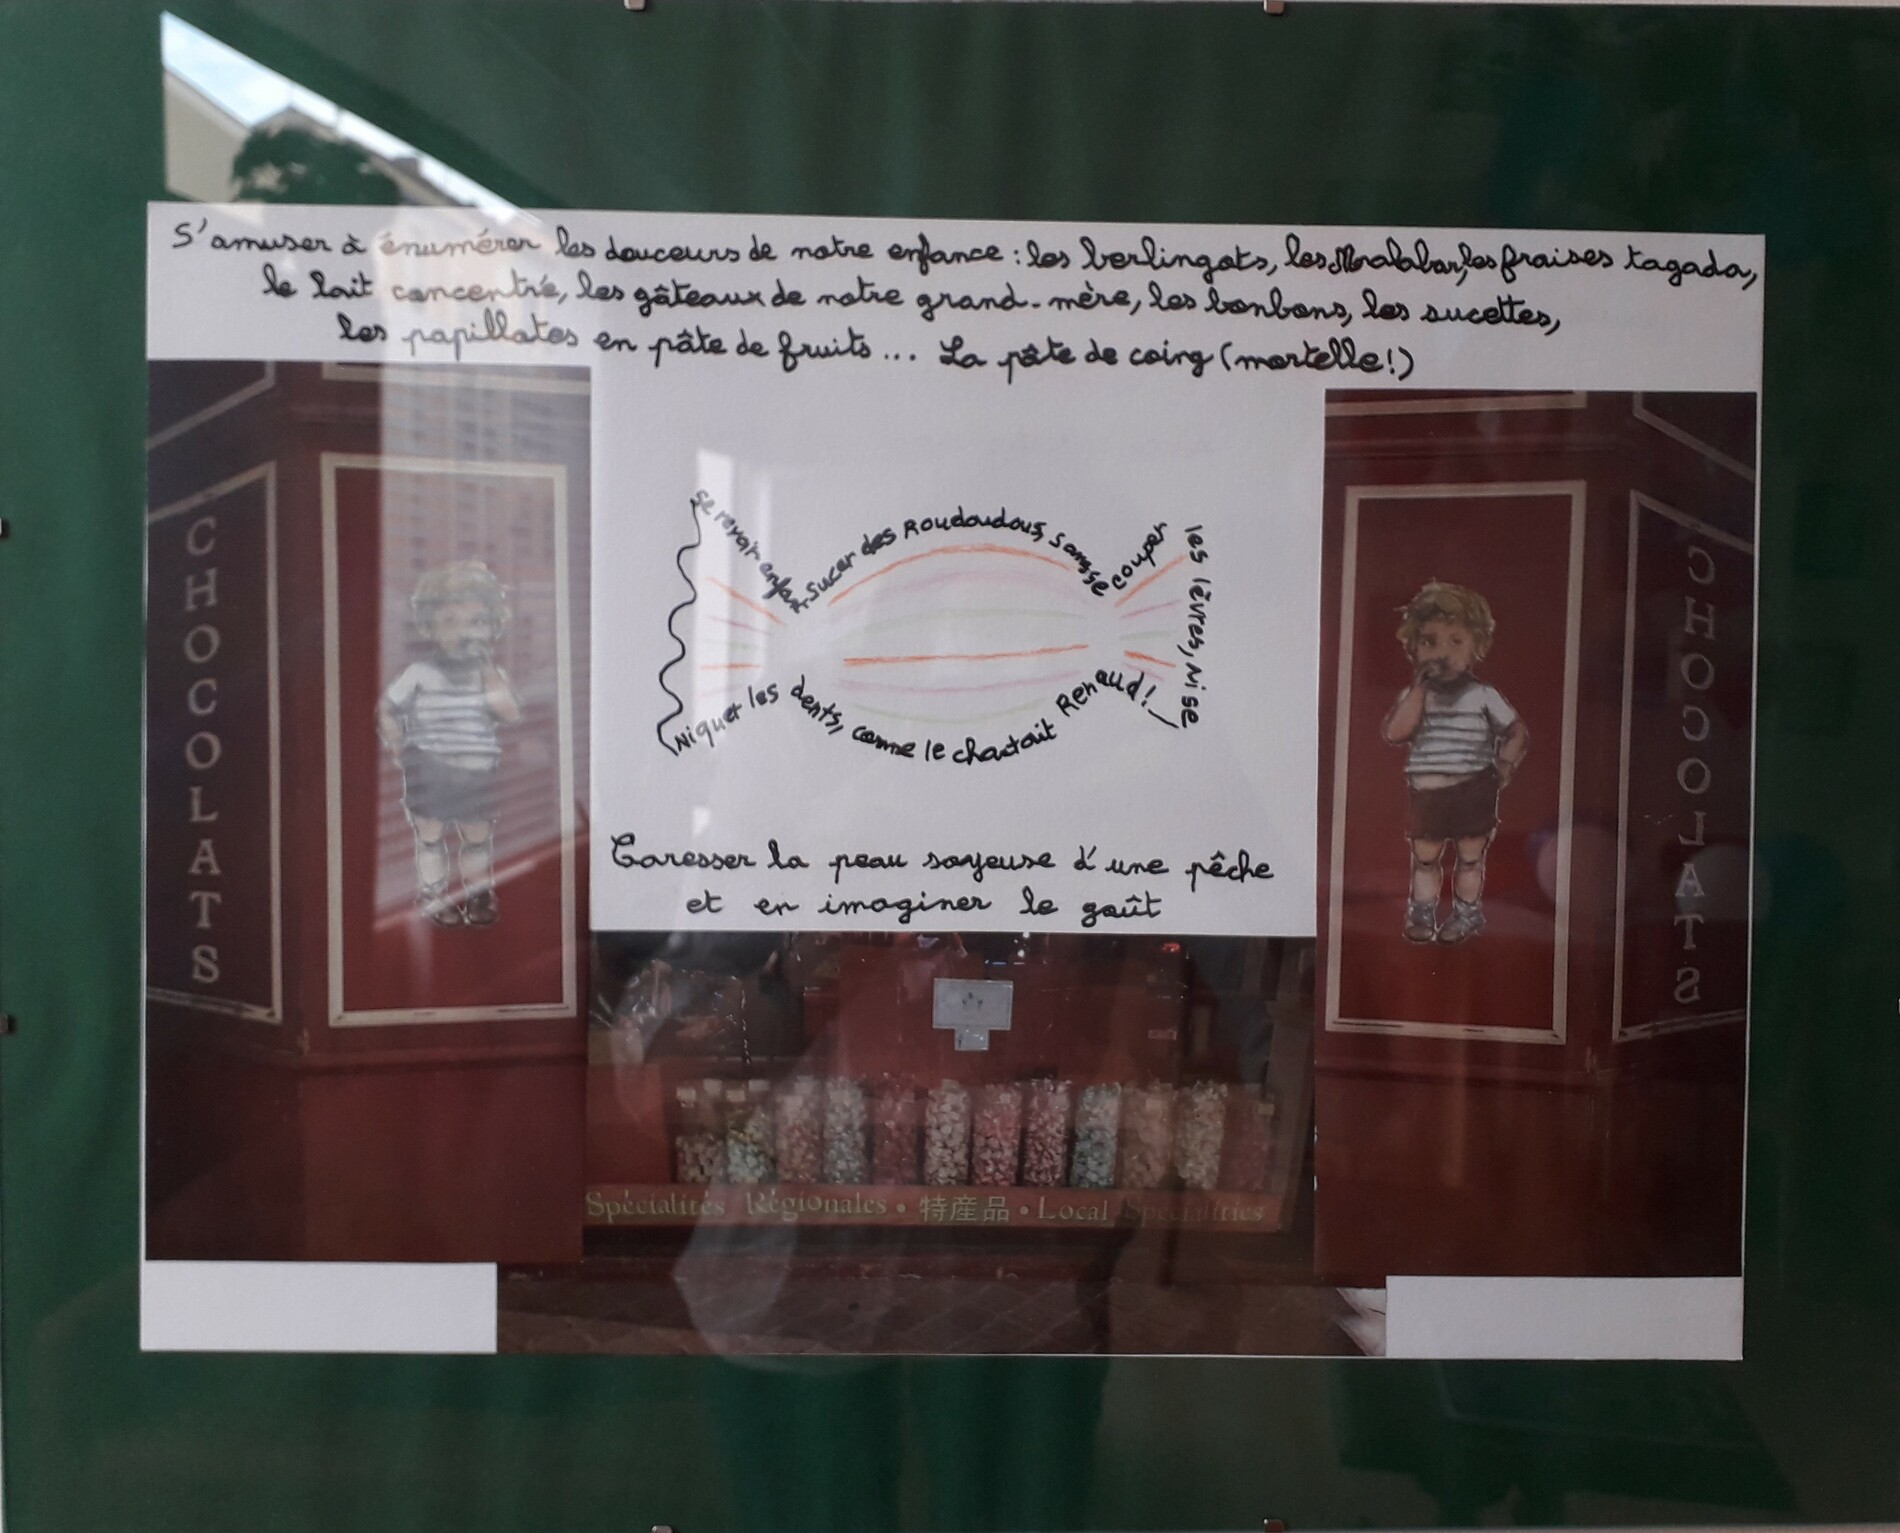 S'amuser à énumérer les douceurs de notre enfance : les berlingots, les Malabar, les fraises tagada,
le lait concentré, les gâteaux de notre grand-mère, les bonbons, les sucettes,
les papillotes en pâte de fruits... La pâte de coing (mortelle!)
CHOCOLATS
Se revoir enfant. Sucer des Roudoudous, sans se couper les lèvres, ni se
Niquer les dents, comme le chantait Renaud!
CHOCOLATS
Caresser la peau soyeuse d'une pêche
et en imaginer le goût
Spécialités Régionales • 特産品 • Local Specialities